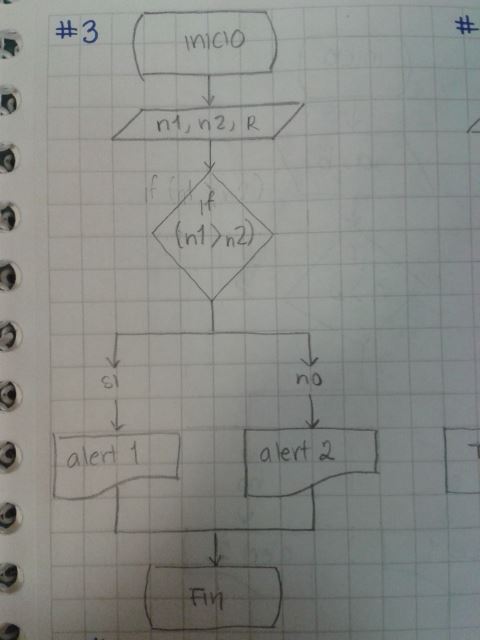 #3
INICIO
n1, n2, R
if
(n1>n2)
si
no
alert 1
alert 2
FIN
#